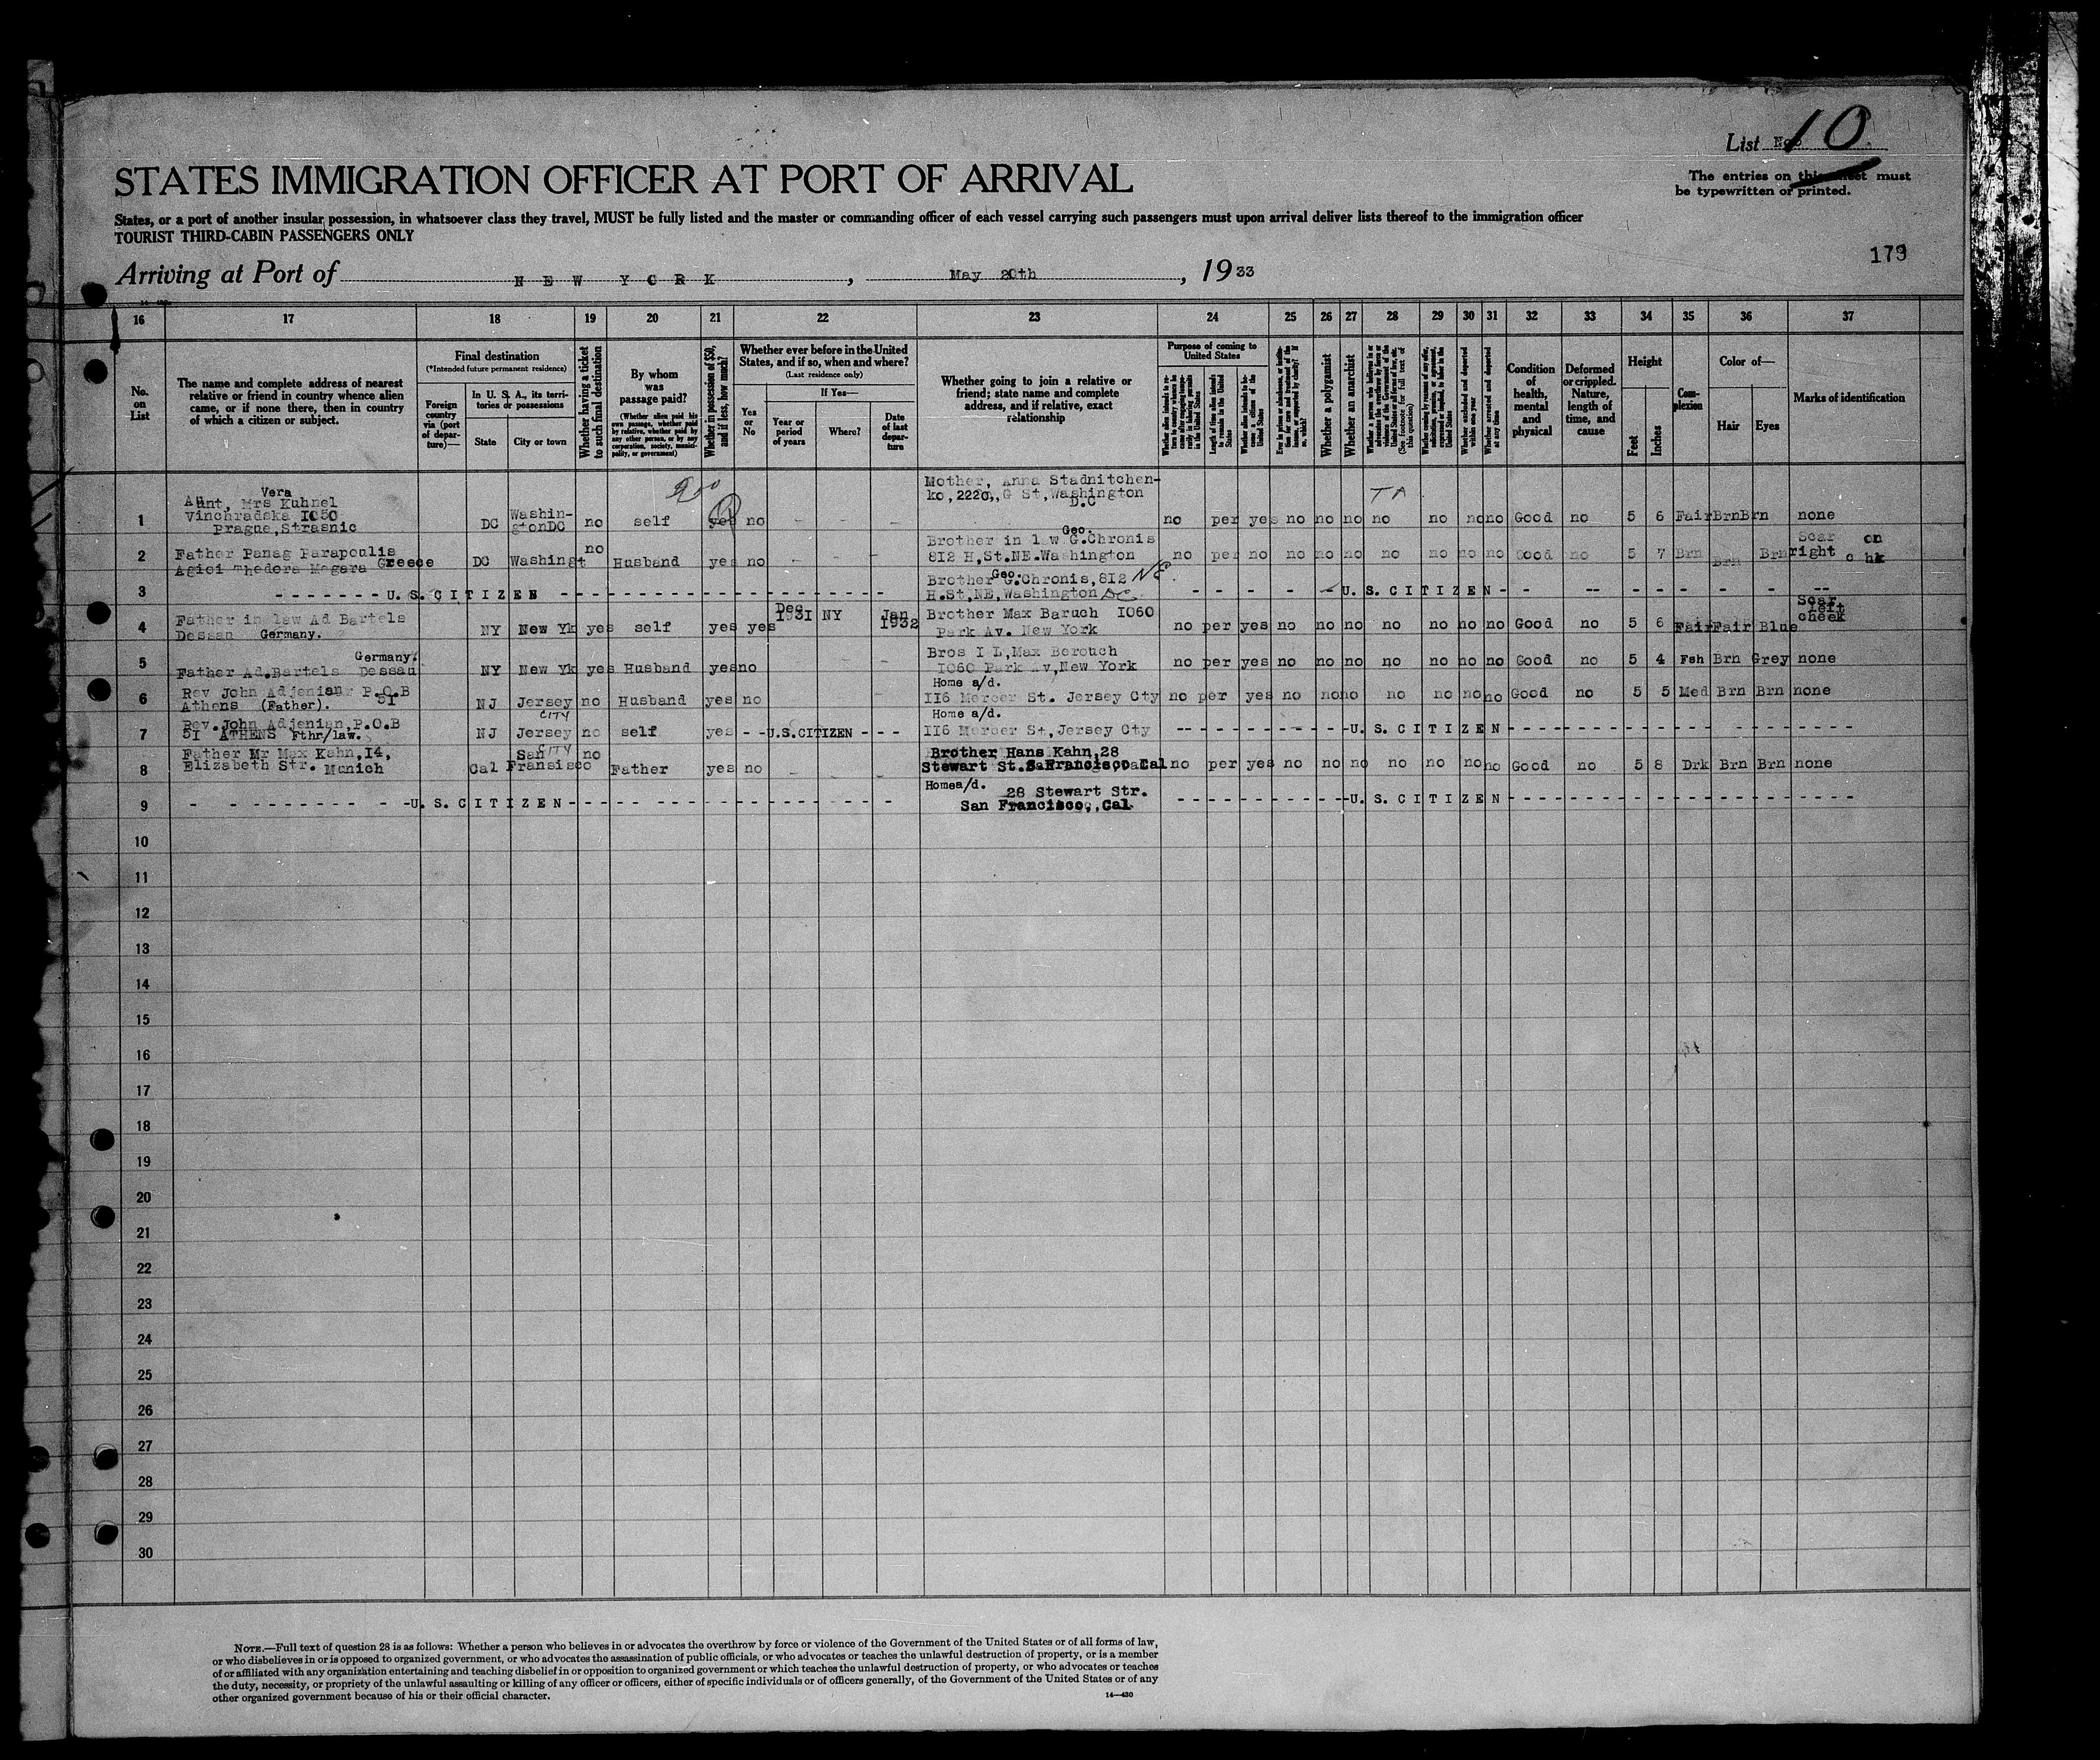 List No. 10
The entries on this sheet must
be typewritten or printed.
STATES IMMIGRATION OFFICER AT PORT OF ARRIVAL
States, or a port of another insular possession, in whatsoever class they travel, MUST be fully listed and the master or commanding officer of each vessel carrying such passengers must upon arrival deliver lists thereof to the immigration officer
TOURIST THIRD-CABIN PASSENGERS ONLY
179
Arriving at Port of NEW YORK, May 20th, 1933
16 17 18 19 20 21 22 23 24 25 26 27 28 29 30 31 32 33 34 35 36 37
No. on List
The name and complete address of nearest
relative or friend in country whence alien
came, or if none there, then in country
of which a citizen or subject.
Final destination
(*Intended future permanent residence)
Foreign country via (port of departure)—
In U. S. A., its territories or possessions
State
City or town
Whether having a ticket to such final destination
By whom was passage paid?
(Whether alien paid his own passage, whether paid by relative, whether paid by any other person, or by any corporation, society, municipality, or government)
Whether in possession of $50, and if less, how much?
Whether ever before in the United States, and if so, when and where?
(Last residence only)
Yes or No
If Yes—
Year or period of years
Where?
Date of last departure
Whether going to join a relative or
friend; state name and complete
address, and if relative, exact
relationship
Purpose of coming to United States
Length of time alien intends to remain in the United States
Whether alien intends to become a citizen of the United States
Whether a polygamist
Whether an anarchist
(See footnote for full text of this question)
Whether arrested and deported at any time
Condition of health, mental and physical
Deformed or crippled. Nature, length of time, and cause
Height
Feet
Inches
Complexion
Color of—
Hair
Eyes
Marks of identification
1 Aunt, Mrs Vera Kuhnel
Vinchradska 1050
Prague, Strasnic
DC Washin-
gtonDC no self yes no - - -
Mother, Anna Stadnitchen-
ko, 2220,, G St, Washington
D.C
no per yes no no no no no no no Good no 5 6 Fair Brn Brn none
2 Father Panag Parapoulis
Agioi Thedora Megara Greece
DC Washingt no Husband yes no - - -
Brother in law Geo. G.Chronis
812 H,St.NE.Washington
no per no no no no no no no no Good no 5 7 Brn Brn Brn Scar on
right chk
3 - - - - - - - U. S. CITIZEN - - - - - - -
Brother Geo. G.Chronis, 812 NE.
H.St,NE,Washington DC
- - - - - U. S. CITIZEN - - - - -
4 Father in law Ad Bartels
Dessau Germany.
NY New Yk yes self yes yes Dec 1931 NY Jan 1932
Brother Max Baruch 1060
Park Av. New York
no per yes no no no no no no no Good no 5 6 Fair Fair Blue Scar left cheek
5 Germany.
Father Ad.Bartels Dessau
NY New Yk yes Husband yes no - -
Bros I L,Max Berouch
1060 Park Av,New York
no per yes no no no no no no no Good no 5 4 Fsh Brn Grey none
6 Rev John Adjenian P.O.B
Athens (Father). 51
NJ Jersey no Husband yes no - -
Home a/d.
116 Mercer St. Jersey Cty
no per yes no no no no no no no Good no 5 5 Med Brn Brn none
7 Rev. John Adjenian, P.O.B
51 ATHENS Fthr/law.
NJ Jersey CITY no self yes - - U.S.CITIZEN - - -
Home a/d.
116 Mercer St, Jersey Cty
- - - - - U. S. CITIZEN - - - - -
8 Father Mr Max Kahn, 14,
Elizabeth Str. Munich
Cal San Fransisco CITY no Father yes no - - -
Brother Hans Kahn, 28
Stewart St. S.Francisco, Cal
no per yes no no no no no no no Good no 5 8 Drk Brn Brn none
9 - - - - - - U. S. CITIZEN - - - - - -
Home a/d. 28 Stewart Str.
San Francisco,,Cal.
- - - - - U. S. CITIZEN - - - - -
10
11
12
13
14
15
16
17
18
19
20
21
22
23
24
25
26
27
28
29
30
NOTE.—Full text of question 28 is as follows: Whether a person who believes in or advocates the overthrow by force or violence of the Government of the United States or of all forms of law,
or who disbelieves in or is opposed to organized government, or who advocates the assassination of public officials, or who advocates or teaches the unlawful destruction of property, or is a member
of or affiliated with any organization entertaining and teaching disbelief in or opposition to organized government or which teaches the unlawful destruction of property, or who advocates or teaches
the duty, necessity, or propriety of the unlawful assaulting or killing of any officer or officers, either of specific individuals or of officers generally, of the Government of the United States or of any
other organized government because of his or their official character.
14—430